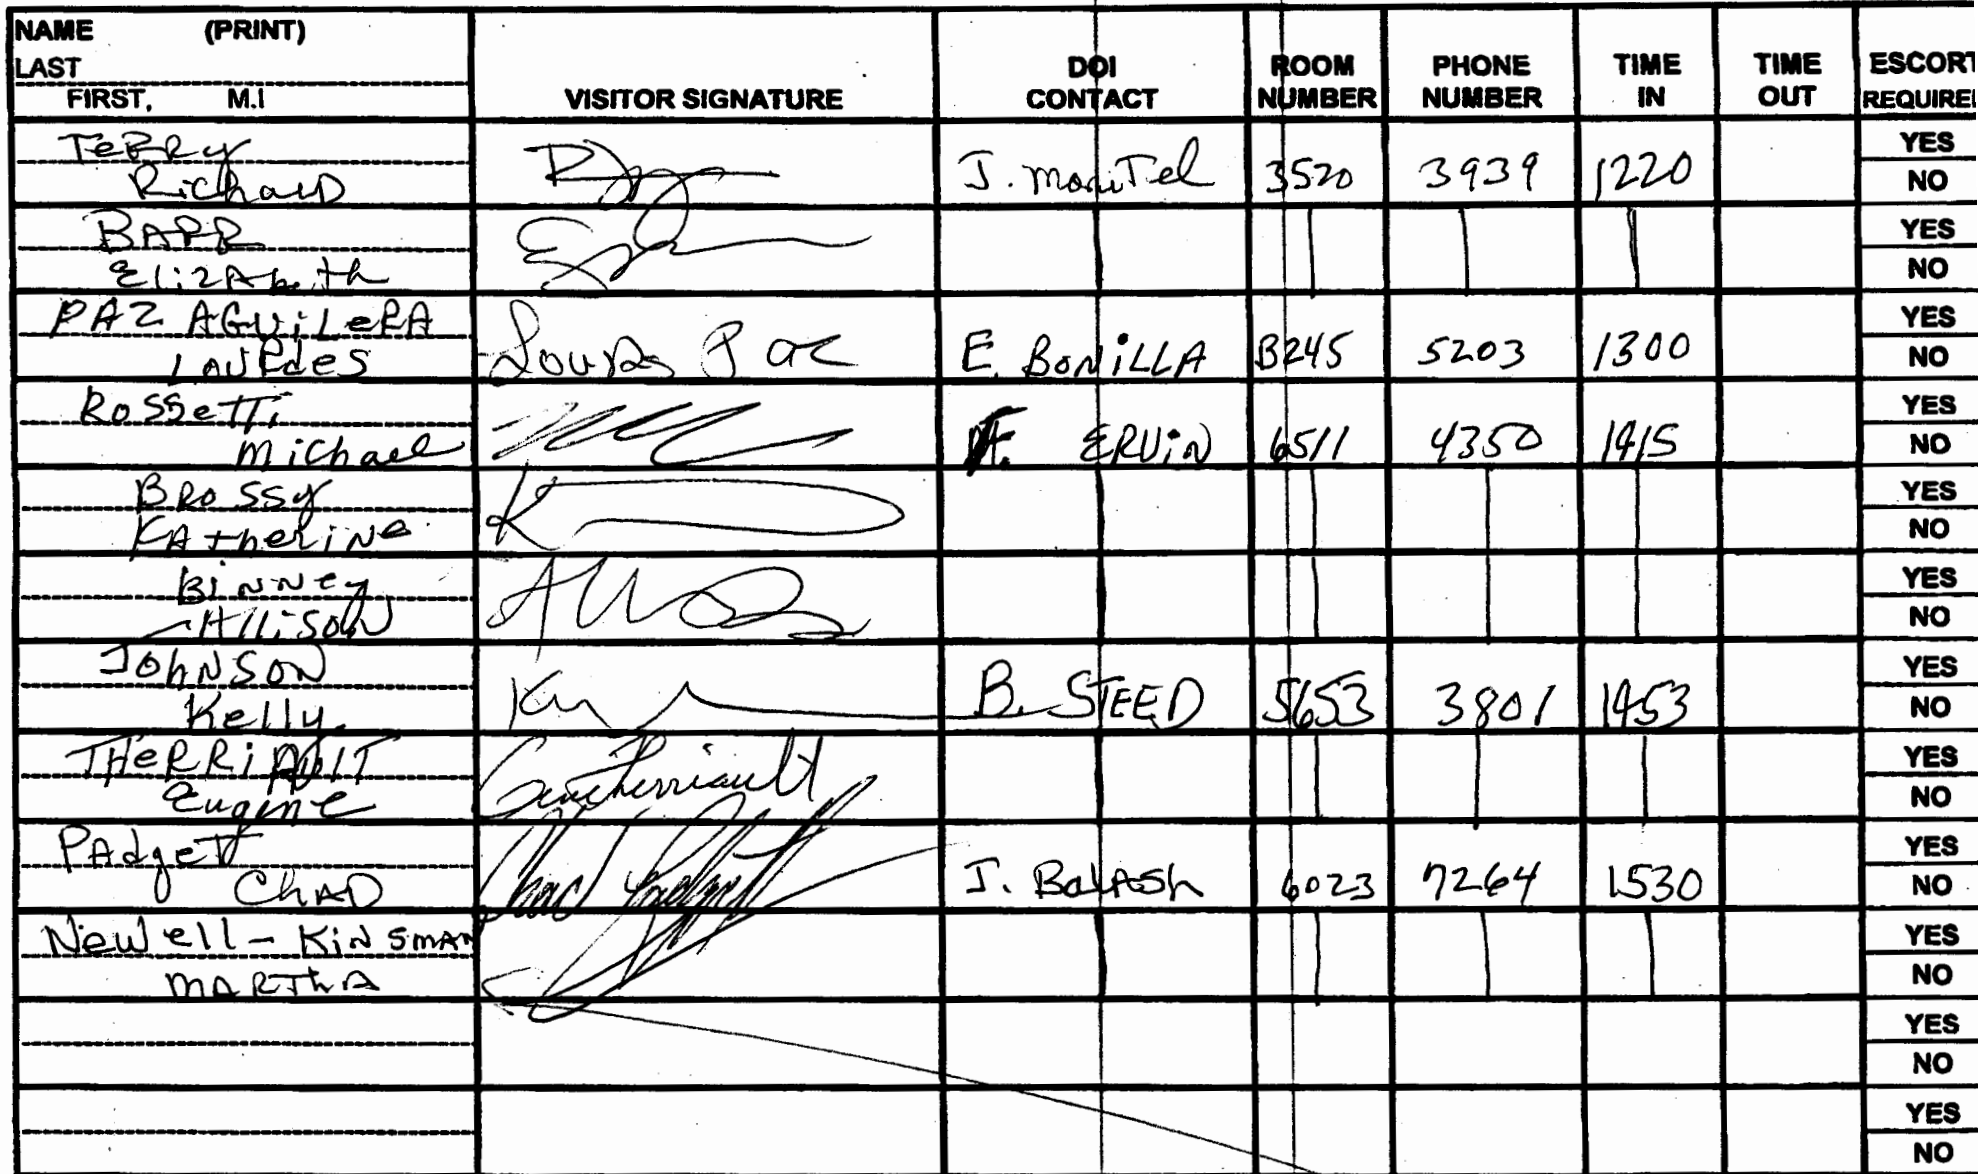 NAME (PRINT)
LAST
FIRST, M.I
VISITOR SIGNATURE
DOI CONTACT
ROOM NUMBER
PHONE NUMBER
TIME IN
TIME OUT
ESCORT REQUIRE
TeRRy
Richard
3520 3939 1220
YES
NO
BARR
ElizAbeth
YES
NO
PAZ AGUiLeRA
LOURdes
E. BONiLLA B245 5203 1300
YES
NO
RoSSeTTi
Michael
ERViN 6511 4350 1415
YES
NO
BRoSSy
KAtheriNe
YES
NO
BiNNey
AlliSON
YES
NO
JOhNSON
Kelly
B. STEED 5653 3801 1453
YES
NO
THeRRiAUlT
Eugene
Gene Therriault
YES
NO
PAdgeTT
ChAD
Chad Padgett
J. BalASh 6023 7264 1530
YES
NO
Newell-KiNSMAN
MARThA
YES
NO
YES
NO
YES
NO